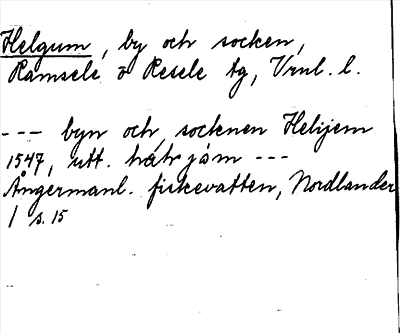 Helgum, by och socken,
Ramsele o Resele tg, Vrnl. l.
--- byn och socknen Helijem
1547, utt. hátrjám ---
Ångermanl. fiskevatten, Nordlander
/ s. 15